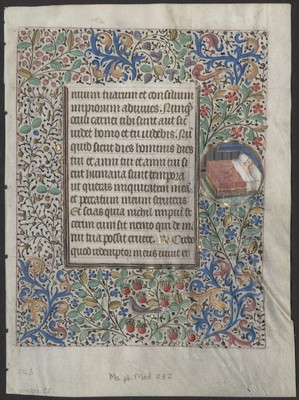 nuum tuarum et consilium
impiorum adiuves. Nunq̃
oculi carnei tibi sunt aut sic̃
videt homo et tu videbis. Nũ
quid sicut dies hominis dies
tui et anni tui
si humana sunt tempora
ut queras iniquitatem meã
et peccatum meum scruteris
Et scias quia nichil impiũ fe
cerim cum sit nemo qui de ma
nu tua possit eruere.
quod redemptor meus vivit et
Ms. pt. Med 232